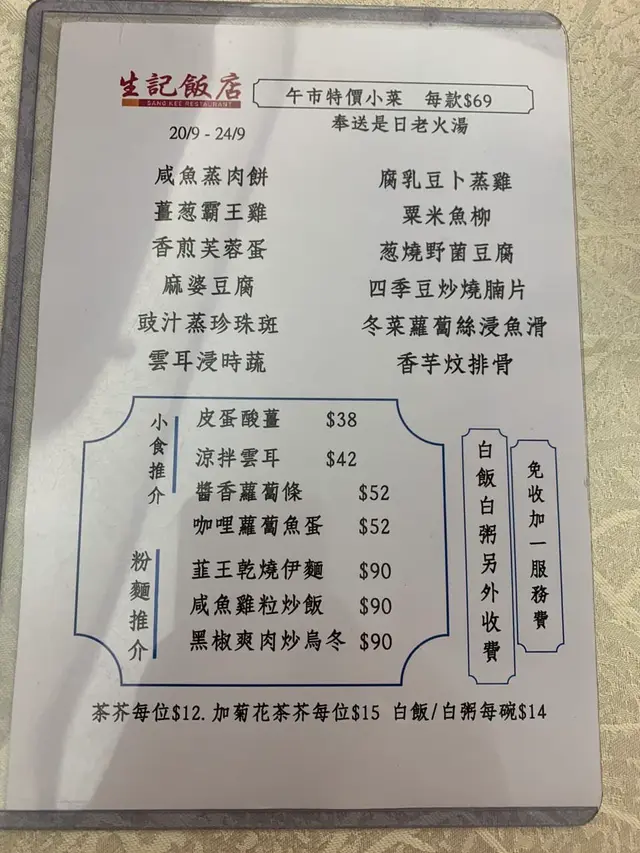 生記飯店
SANG KEE RESTAURANT
午市特價小菜 每款$69
20/9 - 24/9
奉送是日老火湯
咸魚蒸肉餅
腐乳豆卜蒸雞
薑葱霸王雞
粟米魚柳
香煎芙蓉蛋
葱燒野菌豆腐
麻婆豆腐
四季豆炒燒腩片
豉汁蒸珍珠斑
冬菜蘿蔔絲浸魚滑
雲耳浸時蔬
香芋炆排骨
小食推介
皮蛋酸薑 $38
涼拌雲耳 $42
醬香蘿蔔條 $52
咖哩蘿蔔魚蛋 $52
粉麵推介
韮王乾燒伊麵 $90
咸魚雞粒炒飯 $90
黑椒爽肉炒烏冬 $90
白飯白粥另外收費
免收加一服務費
茶芥每位$12. 加菊花茶芥每位$15 白飯/白粥每碗$14